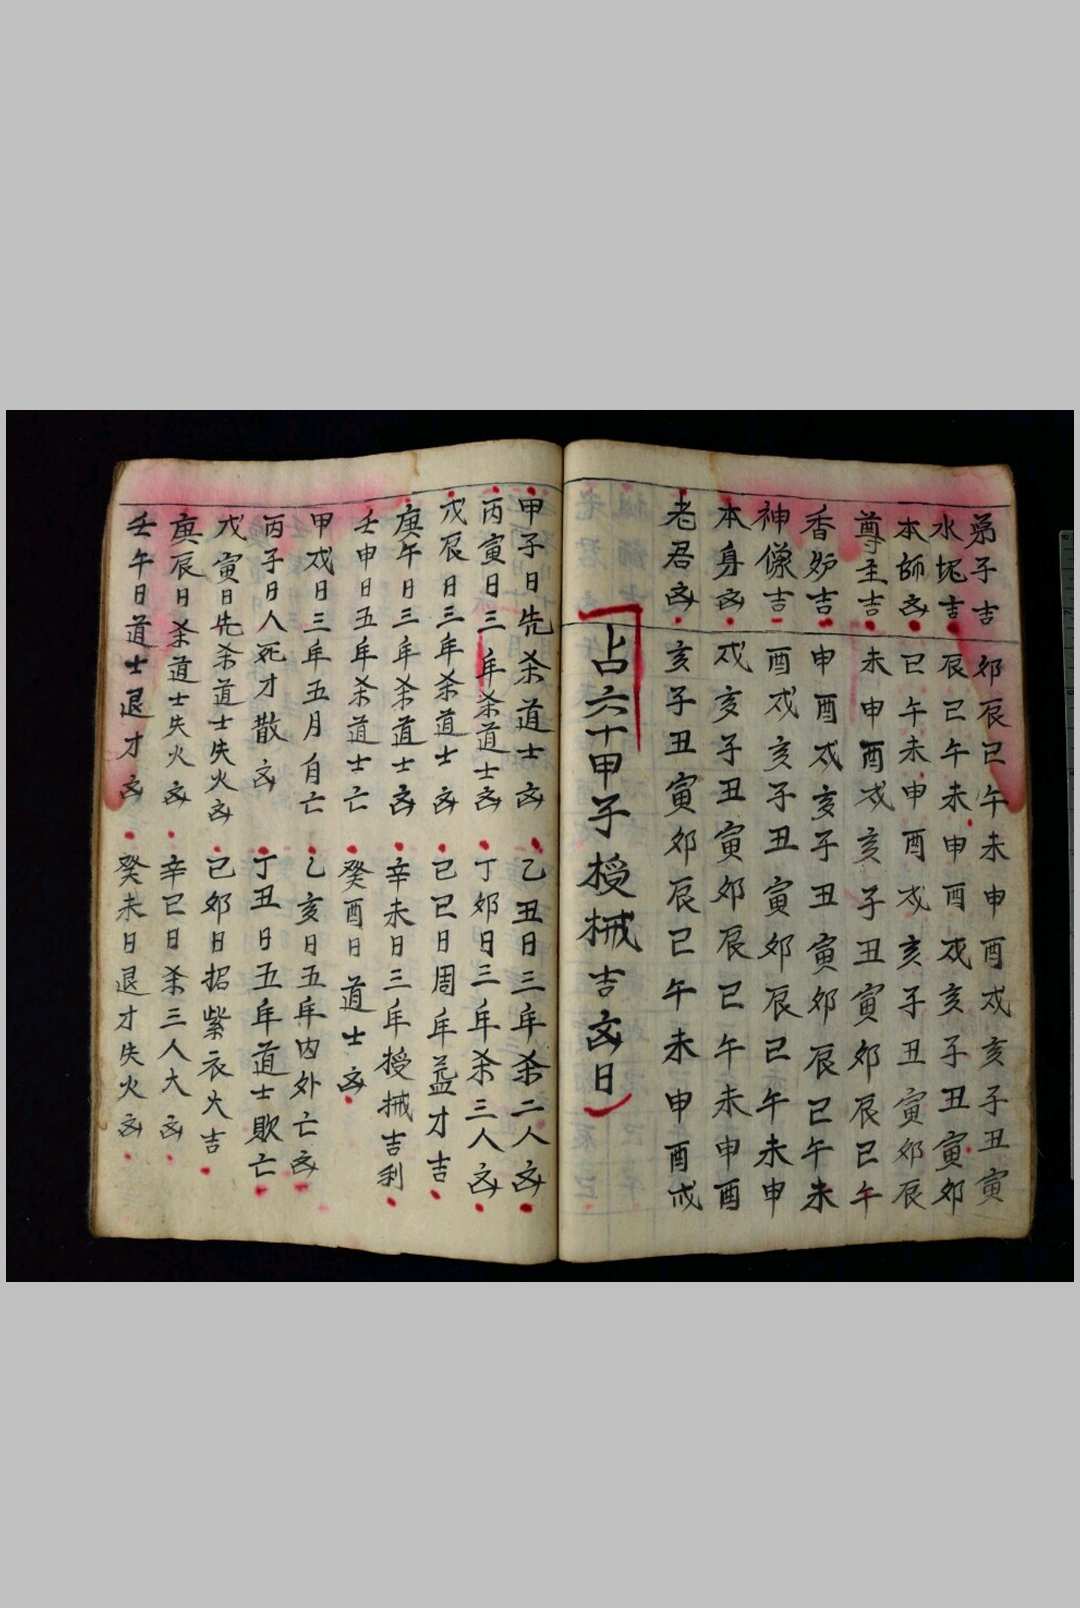 弟子吉 卯辰巳午未申酉戌亥子丑寅
水吉 辰巳午未申酉戌亥子丑寅卯
本師凶 巳午未申酉戌亥子丑寅卯辰
尊主吉 未申酉戌亥子丑寅卯辰巳午
香炉吉 申酉戌亥子丑寅卯辰巳午未
神像吉 酉戌亥子丑寅卯辰巳午未申
本身凶 戌亥子丑寅卯辰巳午未申酉
老君凶 亥子丑寅卯辰巳午未申酉戌
占六十甲子授械吉凶日
甲子日先杀道士凶 乙丑日三年杀二人凶
丙寅日三年杀道士凶 丁卯日三年杀三人凶
戊辰日三年杀道士凶 己巳日周年益才吉
庚午日三年杀道士凶 辛未日三年授械吉利
壬申日五年杀道士亡 癸酉日道士凶
甲戌日三年五月自亡 乙亥日五年内外亡凶
丙子日人死才散凶 丁丑日五年道士敗亡
戊寅日先杀道士失火凶 己卯日招紫衣大吉
庚辰日杀道士失火凶 辛巳日杀三人大凶
壬午日道士退才凶 癸未日退才失火凶